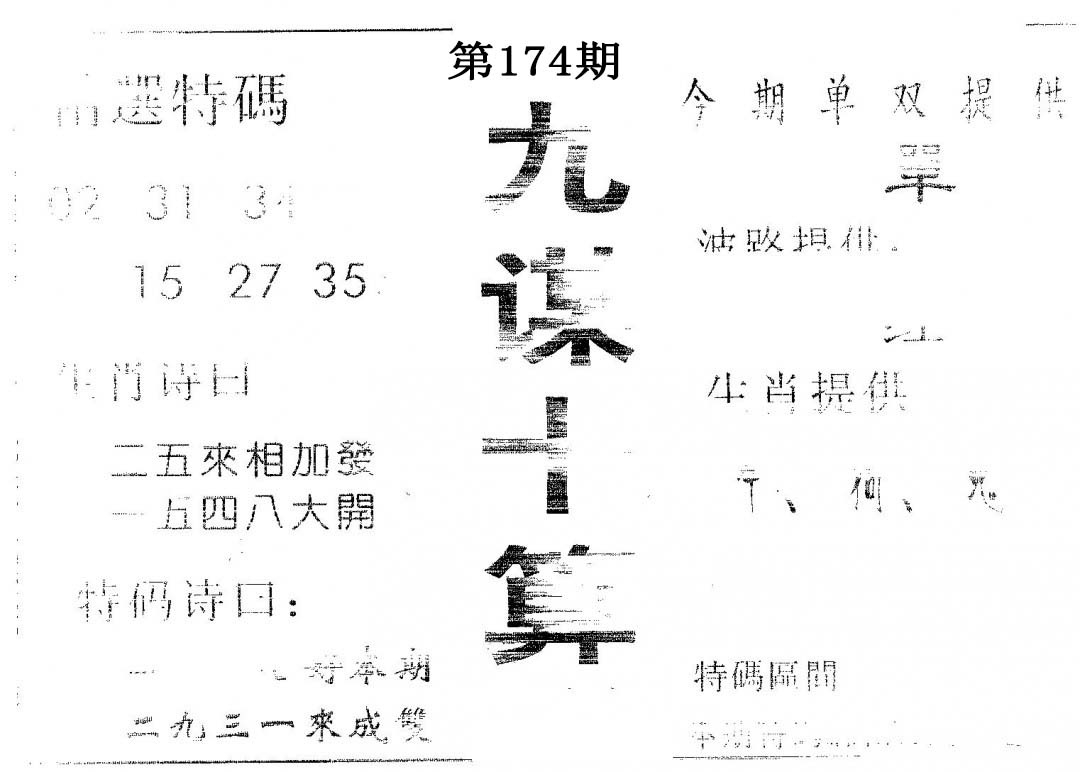 第174期
選特碼
02 31 34
15 27 35
生肖诗曰
二五來相加發
一五四八大開
特码诗曰：
好本期
二九三一來成雙
九谋十算
今期单双提供
單
波路提供：
生肖提供
特碼區間